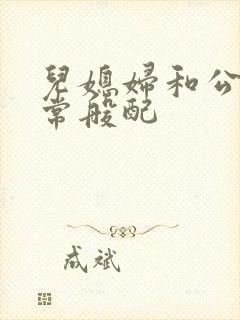 兒媳婦和公
常般配
成斌